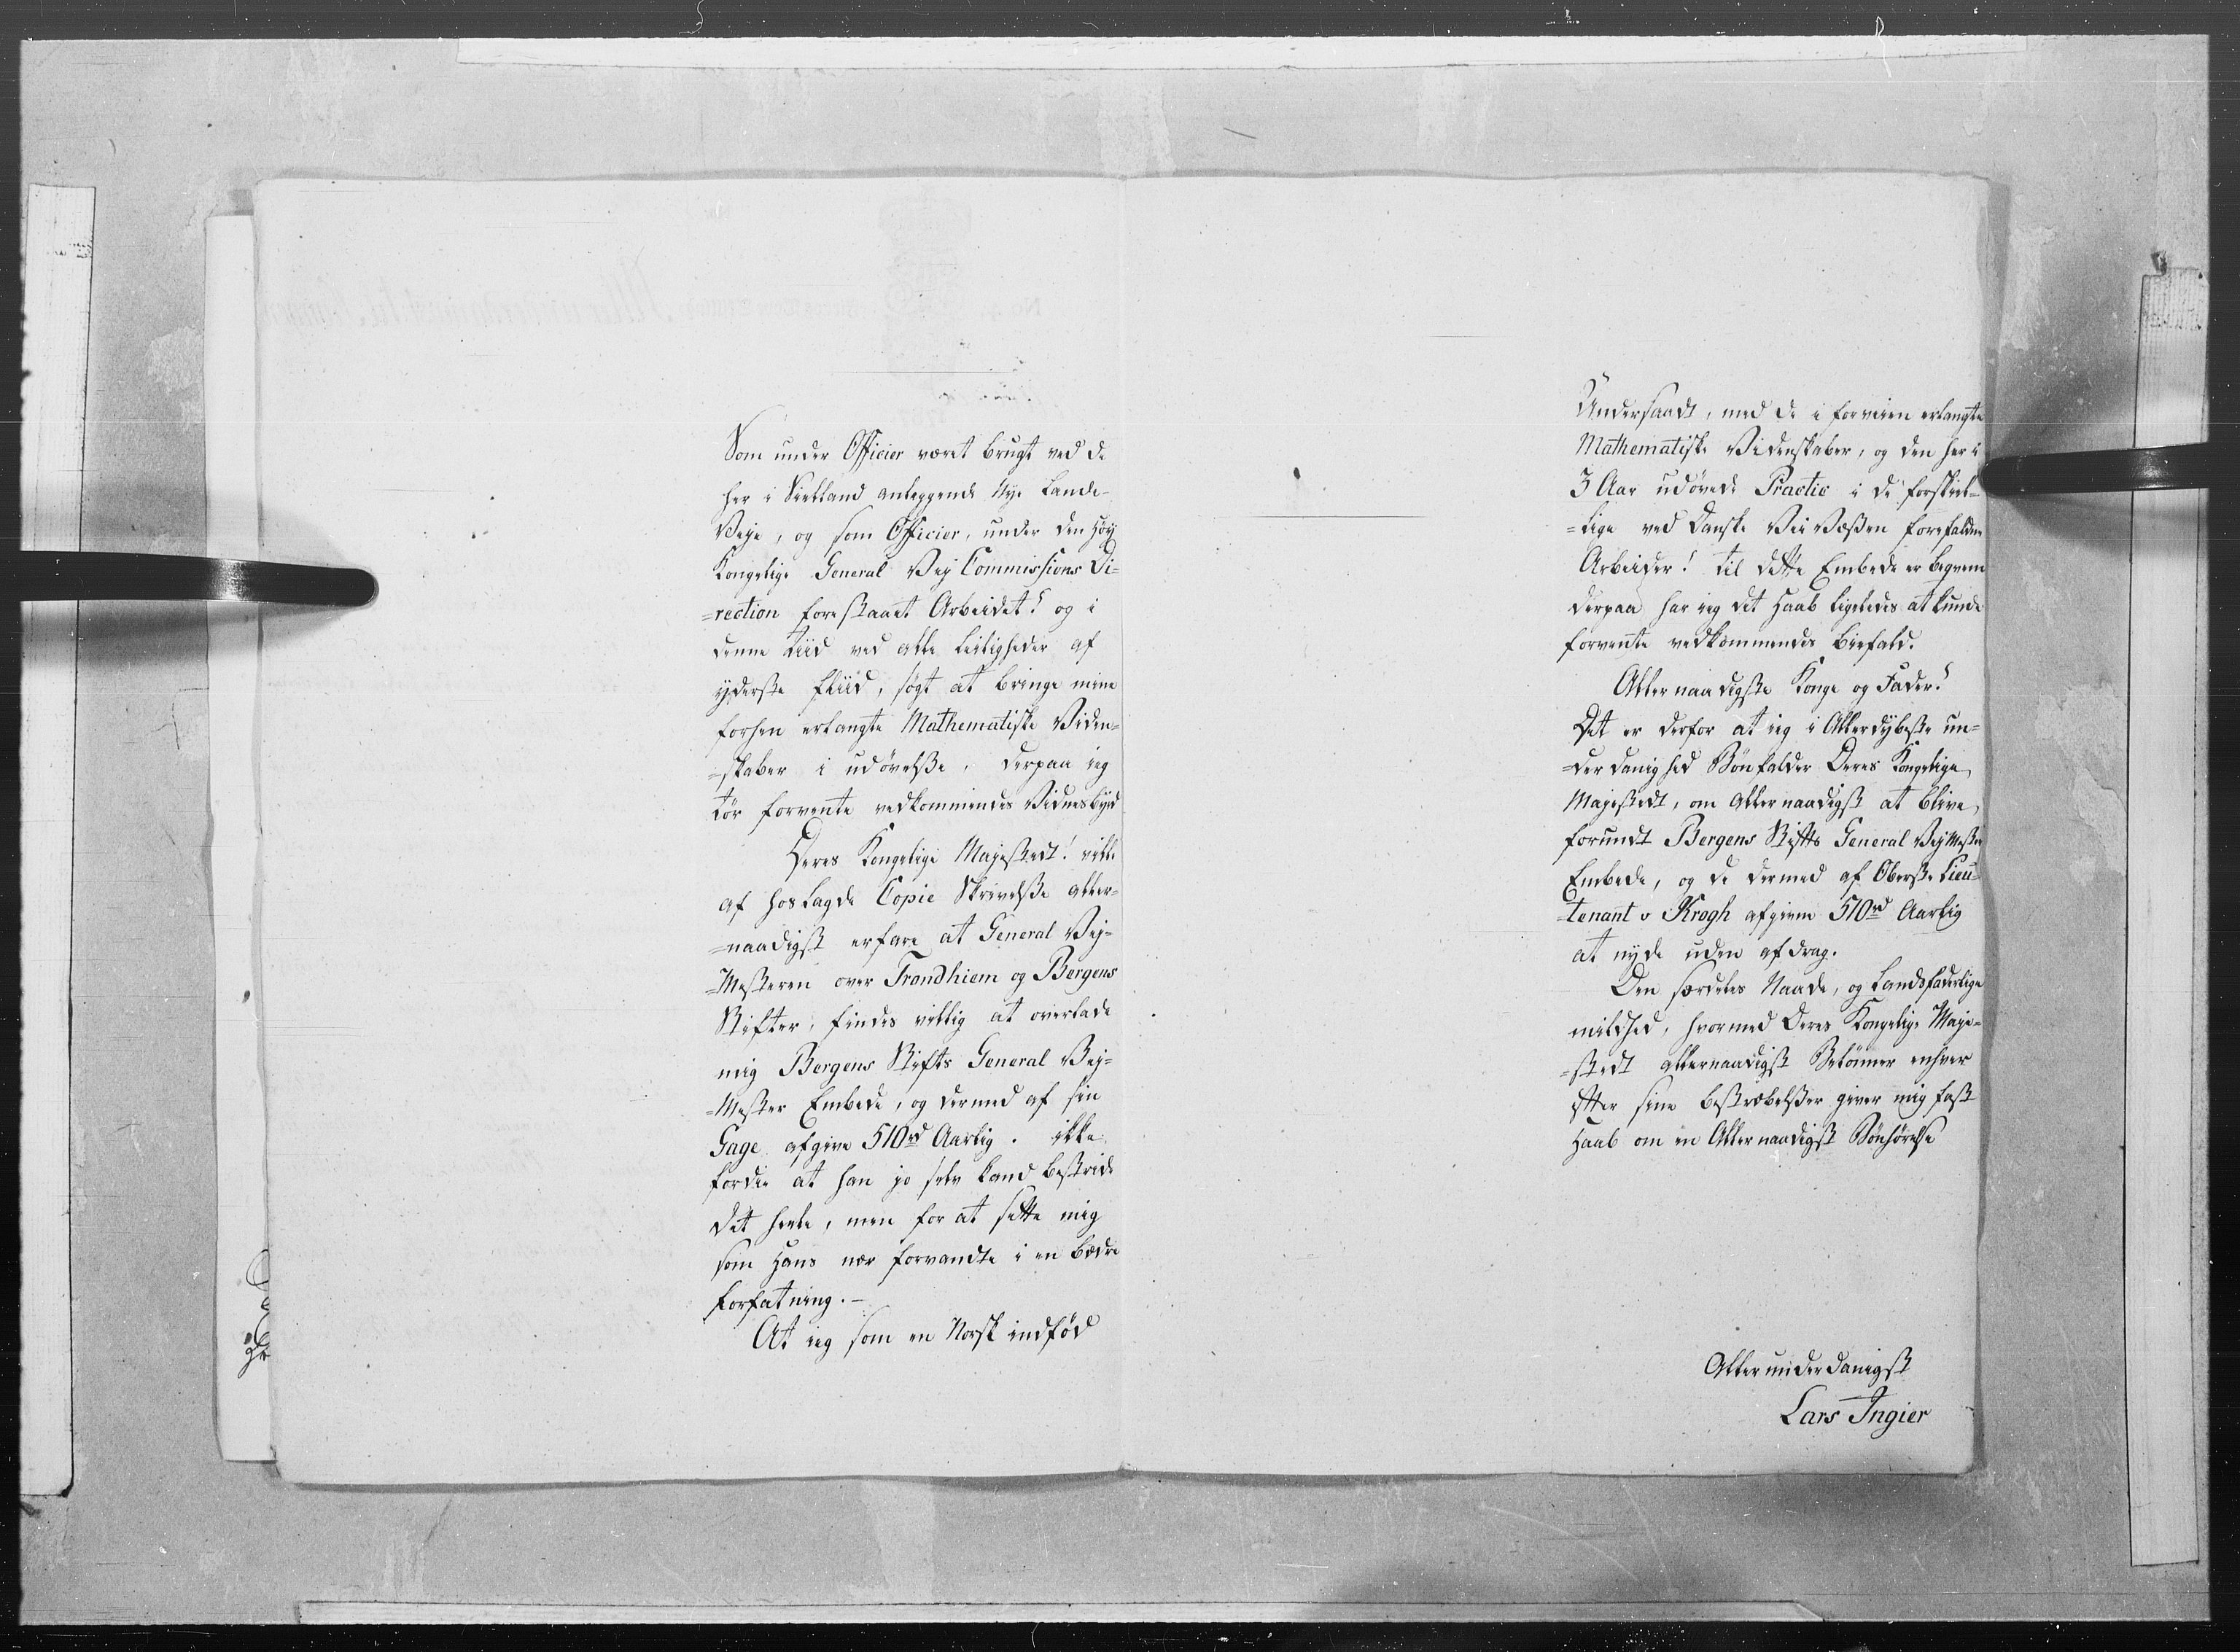 Som under Officier været brugt ved de
her i Siælland anleggende Nye Lande-
Veje, og som Officier, under den Høy
Kongelige General Vej Commissions Di-
=rection forestaaet Arbeidet! og i
denne Tiid ved alle Leiligheder af
yderste Fliid, søgt at bringe mine
forhen erlangte Mathematiske Viden-
=skaber i udøvelsse, derpaa ieg
tør forvente vedkommendes Vidnesbyrd
Deres Kongelige Majestedt! ville
af hoslagde Copie Skrivelsse aller-
=naadigst erfare at General Vej-
=Mesteren over Trondhiem og Bergens
Stifter, findes villig at overlade
mig Bergens Stifts General Vej-
=Mester Embede, og dermed af sin
Gage afgive 510rd Aarlig. ikke
fordie at han jo selv kand bestride
det heele, men for at sette mig
som Hans nær forvandte i en bedre
forfatning.-
At ieg som en Norsk indfød
Undersaadt, med de i forveien erlangte
Mathematiske Videnskaber, og den her i
3 Aar udøvede Practic i de forskiel-
=lige ved Danske Vei Væßen forefaldne
Arbeider! til dette Embede er beqvem
derpaa har ieg det Haab ligeledes at kunde
forvente vedkommendes Biefald.
Allernaadigste Konge og Fader!
Det er derfor at ieg i Allerdybeste un-
=derdanighed Bønfalder Deres Kongelige
Majestedt, om Allernaadigst at blive
forundt Bergens Stifts General Vejmester
Embede, og de dermed af Oberste Lieu-
=tenant v Krogh afgivne 510rd Aarlig
at nyde uden afdrag.
Den særdeles Naade, og Landsfaderlige
mildhed, hvormed Deres Kongelige Maje-
=stedt allernaadigst Belønner enhver
efter sine bestræbelsser giver mig fast
Haab om en Allernaadigst Bønhørelse
Allerunderdanigst
Lars Ingier